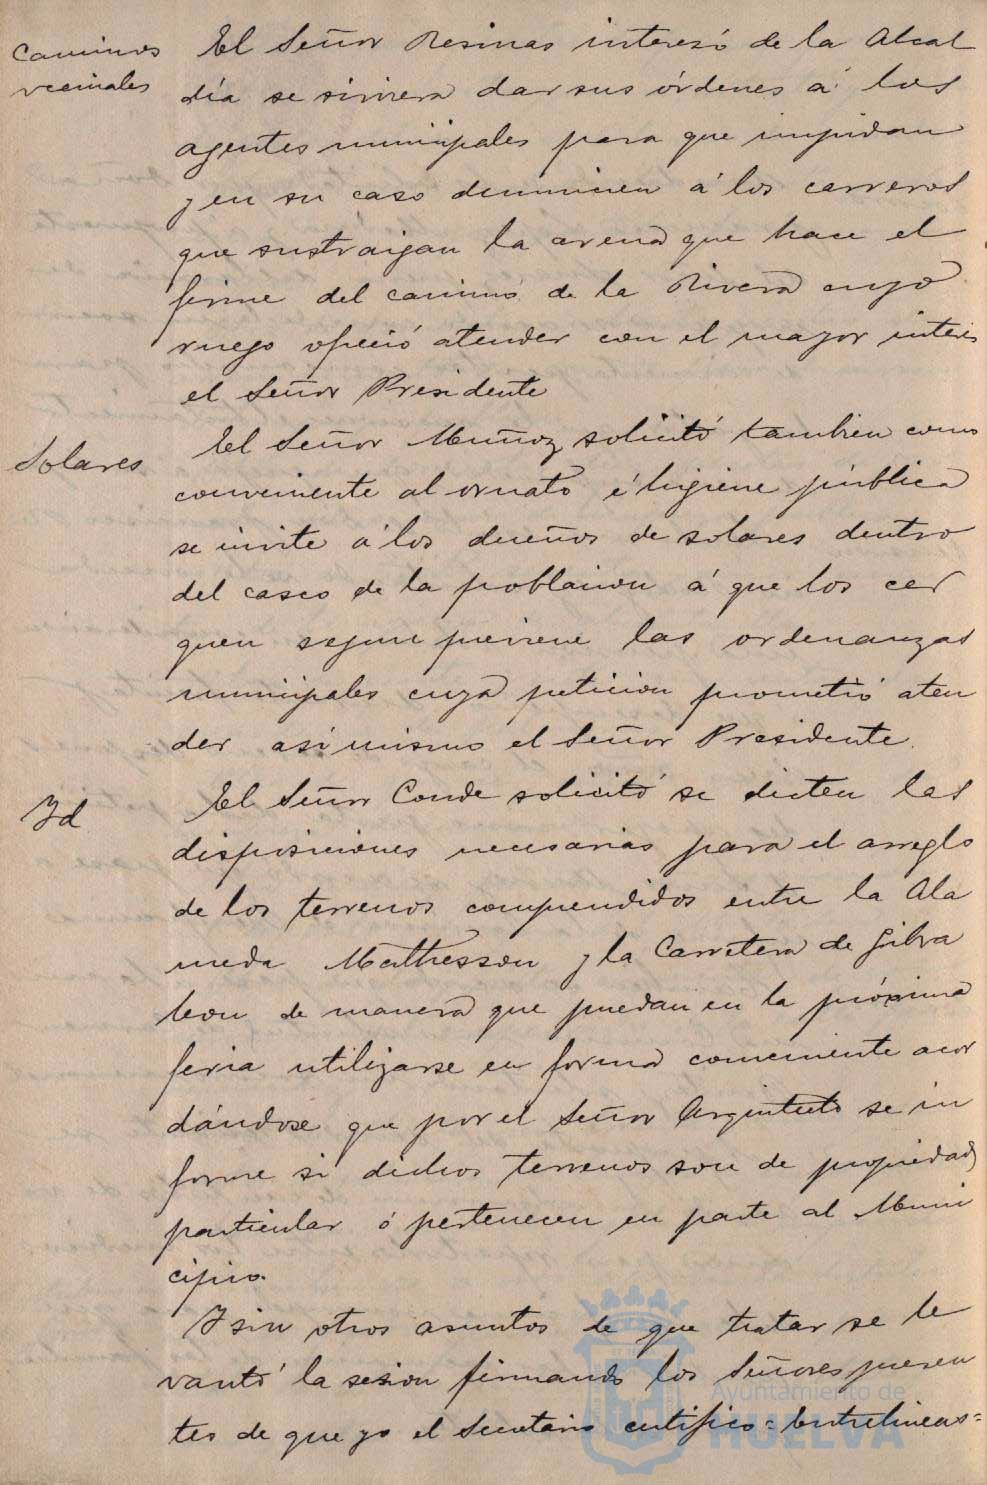 Caminos
vecinales
El Señor Resinas interesó de la Alcal
día se sirviera dar sus órdenes á los
agentes municipales para que impidan
y en su caso denuncien á los carreros
que sustraigan la arena que hace el
firme del camino de la Rivera cuyo
ruego ofreció atender con el mayor interés
el Señor Presidente
Solares
El Señor Muñoz solicitó tambien como
conveniente al ornato é higiene pública
se invite á los dueños de solares dentro
del casco de la poblacion á que los cer
quen segun previene las ordenanzas
municipales cuya peticion prometió aten
der asi mismo el Señor Presidente.
Id
El Señor Conde solicitó se dicten las
disposiciones necesarias para el arreglo
de los terrenos comprendidos entre la Ala
meda Mathesson y la Carretera de Gibra
leon de manera que puedan en la próxima
feria utilizarse en forma conveniente acor
dándose que por el Señor Arquitecto se in
forme si dichos terrenos son de propiedad
particular ó pertenecen en parte al Muni
cipio.
Y sin otros asuntos de que tratar se le
vantó la sesion firmando los Señores presen
tes de que yo el Secretario certifico = Entrelineas =
Ayuntamiento de
HUELVA